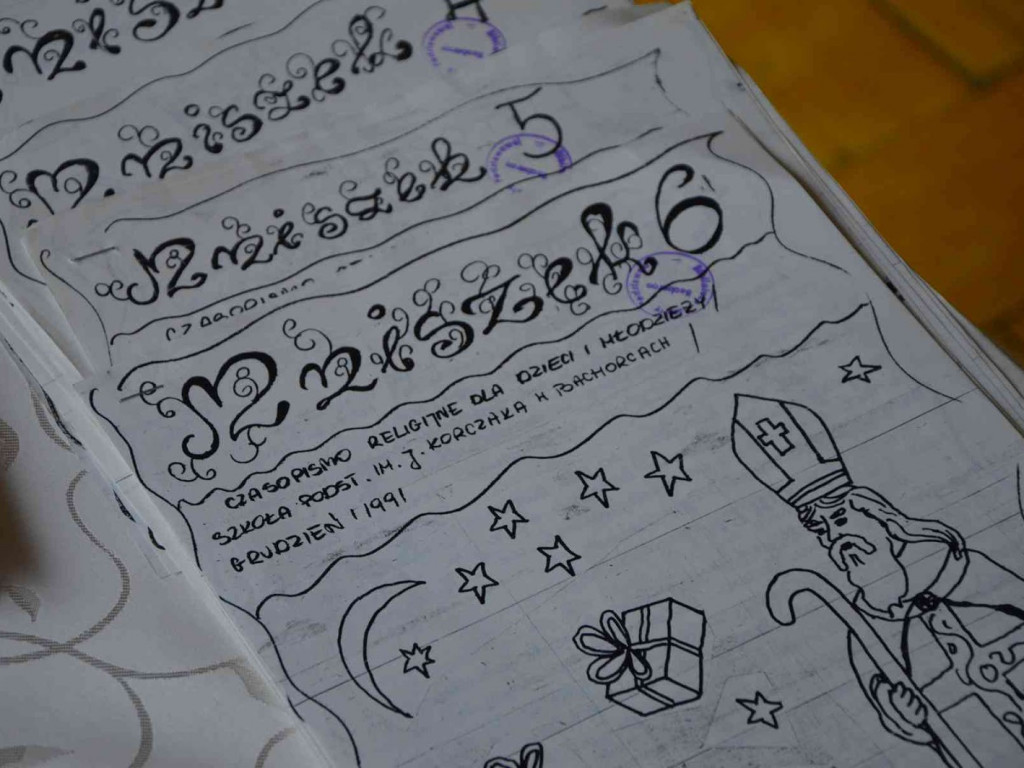 Mniszek
Mniszek 5
Mniszek 6
CZASOPISMO RELIGIJNE DLA DZIECI I MŁODZIEŻY
SZKOŁA PODST. IM. J. KORCZAKA W BACHORCACH
GRUDZIEŃ 1991